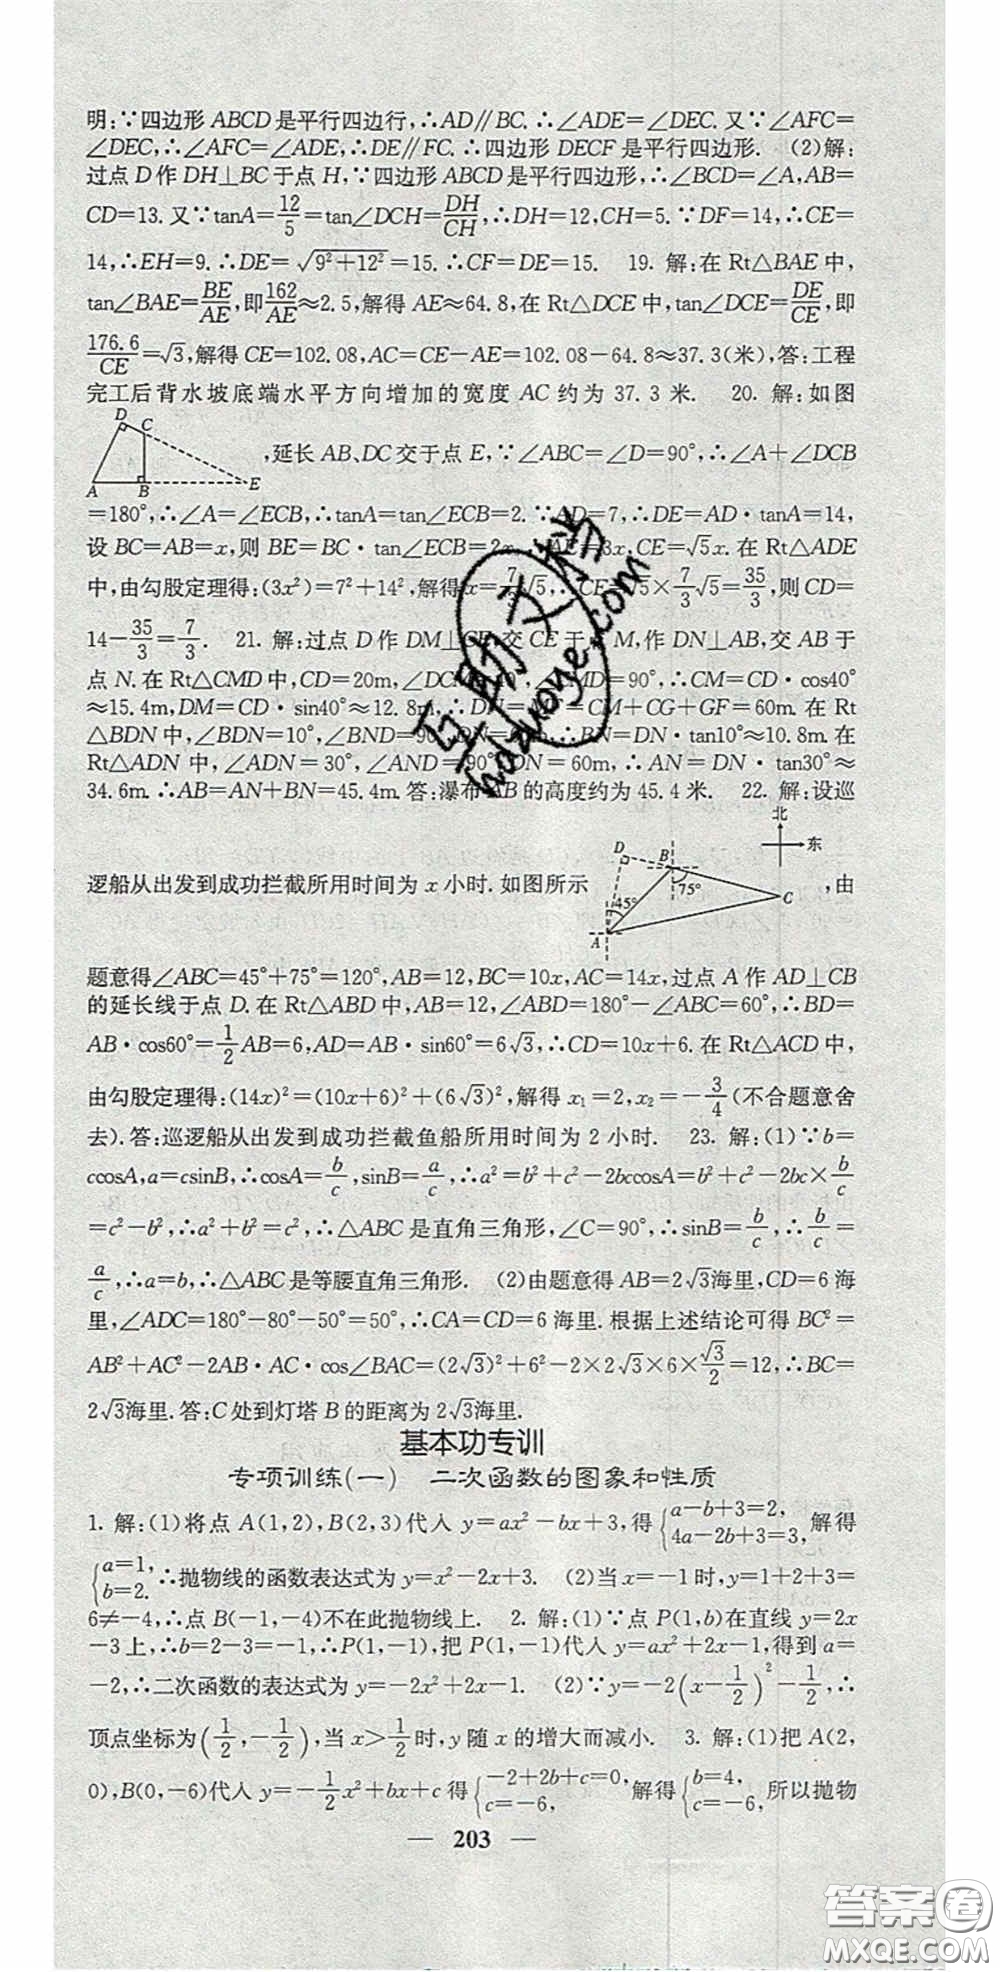 明:∵四边形 ABCD 是平行四边行,∴AD∥BC.∴∠ADE=∠DEC.又∵∠AFC=
∠DEC,∴∠AFC=∠ADE,∴DE∥FC.∴四边形 DECF 是平行四边形. (2)解:
过点 D 作 DH⊥BC 于点 H,∵四边形 ABCD 是平行四边形,∴∠BCD=∠A,AB=
CD=13.又∵tanA=12/5=tan∠DCH=DH/CH,∴DH=12,CH=5.∵DF=14,∴CE=
14,∴EH=9.∴DE=√(9²+12²)=15.∴CF=DE=15. 19. 解:在 Rt△BAE 中,
tan∠BAE=BE/AE,即162/AE≈2.5,解得 AE≈64.8,在 Rt△DCE 中,tan∠DCE=DE/CE,即
176.6/CE=√3,解得 CE=102.08,AC=CE−AE=102.08−64.8≈37.3(米),答:工程
完工后背水坡底端水平方向增加的宽度 AC 约为 37.3 米. 20. 解:如图
D C A B E
,延长 AB、DC 交于点 E,∵∠ABC=∠D=90°,∴∠A+∠DCB
=180°,∴∠A=∠ECB,∴tanA=tan∠ECB=2.∵AD=7,∴DE=AD·tanA=14,
设 BC=AB=x,则 BE=BC·tan∠ECB=2x,∴AE=3x,CE=√5x.在 Rt△ADE
中,由勾股定理得:(3x²)=7²+14²,解得 x=7/3√5,∴CE=√5×7/3√5=35/3,则 CD=
14−35/3=7/3. 21. 解:过点 D 作 DM⊥CE,交 CE 于 M,作 DN⊥AB,交 AB 于
点 N.在 Rt△CMD 中,CD=20m,∠DCM=40°,∠CMD=90°,∴CM=CD·cos40°
≈15.4m,DM=CD·sin40°≈12.8m,∴DN=MF=CM+CG+GF=60m.在 Rt
△BDN 中,∠BDN=10°,∠BND=90°,DN=60m,∴BN=DN·tan10°≈10.8m.在
Rt△ADN 中,∠ADN=30°,∠AND=90°,DN=60m,∴AN=DN·tan30°≈
34.6m.∴AB=AN+BN=45.4m.答:瀑布AB的高度约为 45.4 米. 22. 解:设巡
北 东 D B 75° 45° C A
逻船从出发到成功拦截所用时间为 x 小时.如图所示 ,由
题意得∠ABC=45°+75°=120°,AB=12,BC=10x,AC=14x,过点 A 作 AD⊥CB
的延长线于点 D.在 Rt△ABD 中,AB=12,∠ABD=180°−∠ABC=60°,∴BD=
AB·cos60°=1/2AB=6,AD=AB·sin60°=6√3,∴CD=10x+6.在 Rt△ACD 中,
由勾股定理得:(14x)²=(10x+6)²+(6√3)²,解得 x₁=2,x₂=−3/4(不合题意舍
去).答:巡逻船从出发到成功拦截鱼船所用时间为 2 小时. 23. 解:(1)∵b=
ccosA,a=csinB,∴cosA=b/c,sinB=a/c,∴a²=b²+c²−2bccosA=b²+c²−2bc×b/c
=c²−b²,∴a²+b²=c²,∴△ABC 是直角三角形,∠C=90°,∴sinB=b/c,∴b/c=
a/c,∴a=b,∴△ABC 是等腰直角三角形. (2)由题意得 AB=2√3海里,CD=6 海
里,∠ADC=180°−80°−50°=50°,∴CA=CD=6 海里.根据上述结论可得 BC²=
AB²+AC²−2AB·AC·cos∠BAC=(2√3)²+6²−2×2√3×6×√3/2=12,∴BC=
2√3海里.答:C处到灯塔 B 的距离为 2√3海里.
基本功专训
专项训练(一) 二次函数的图象和性质
1. 解:(1)将点 A(1,2),B(2,3)代入 y=ax²−bx+3,得{a−b+3=2, 4a−2b+3=3,解得
{a=1, b=2.∴抛物线的函数表达式为 y=x²−2x+3. (2)当 x=−1 时,y=1+2+3=
6≠−4,∴点 B(−1,−4)不在此抛物线上. 2. 解:(1)∵点 P(1,b)在直线 y=2x
−3 上,∴b=2−3=−1,∴P(1,−1),把 P(1,−1)代入 y=ax²+2x−1,得到 a=
−2,∴二次函数的表达式为 y=−2x²+2x−1. (2)∵y=−2(x−1/2)²−1/2,∴
顶点坐标为(1/2,−1/2),当 x>1/2时,y 随 x 的增大而减小. 3. 解:(1)把 A(2,
0),B(0,−6)代入 y=−1/2x²+bx+c 得{−2+2b+c=0, c=−6,解得{b=4, c=−6,所以抛物
— 203 —
互助文档
hdzuoye.com
答案圈
MXQE.COM